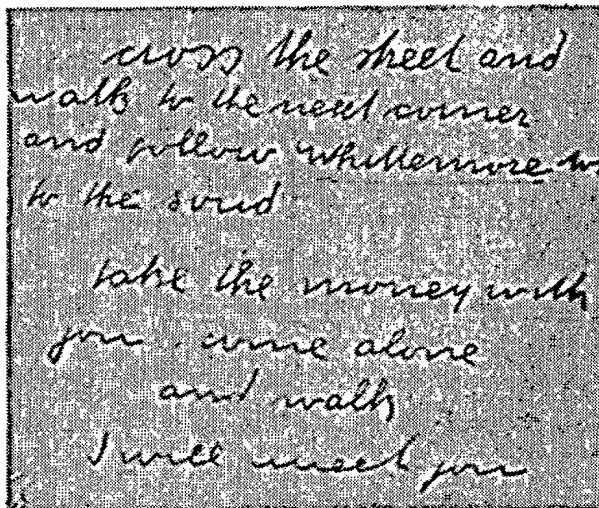 cross the street and
walk to the next corner
and follow whittemore
to the soud
take the money with
you. come alone
and walk
I will meet you